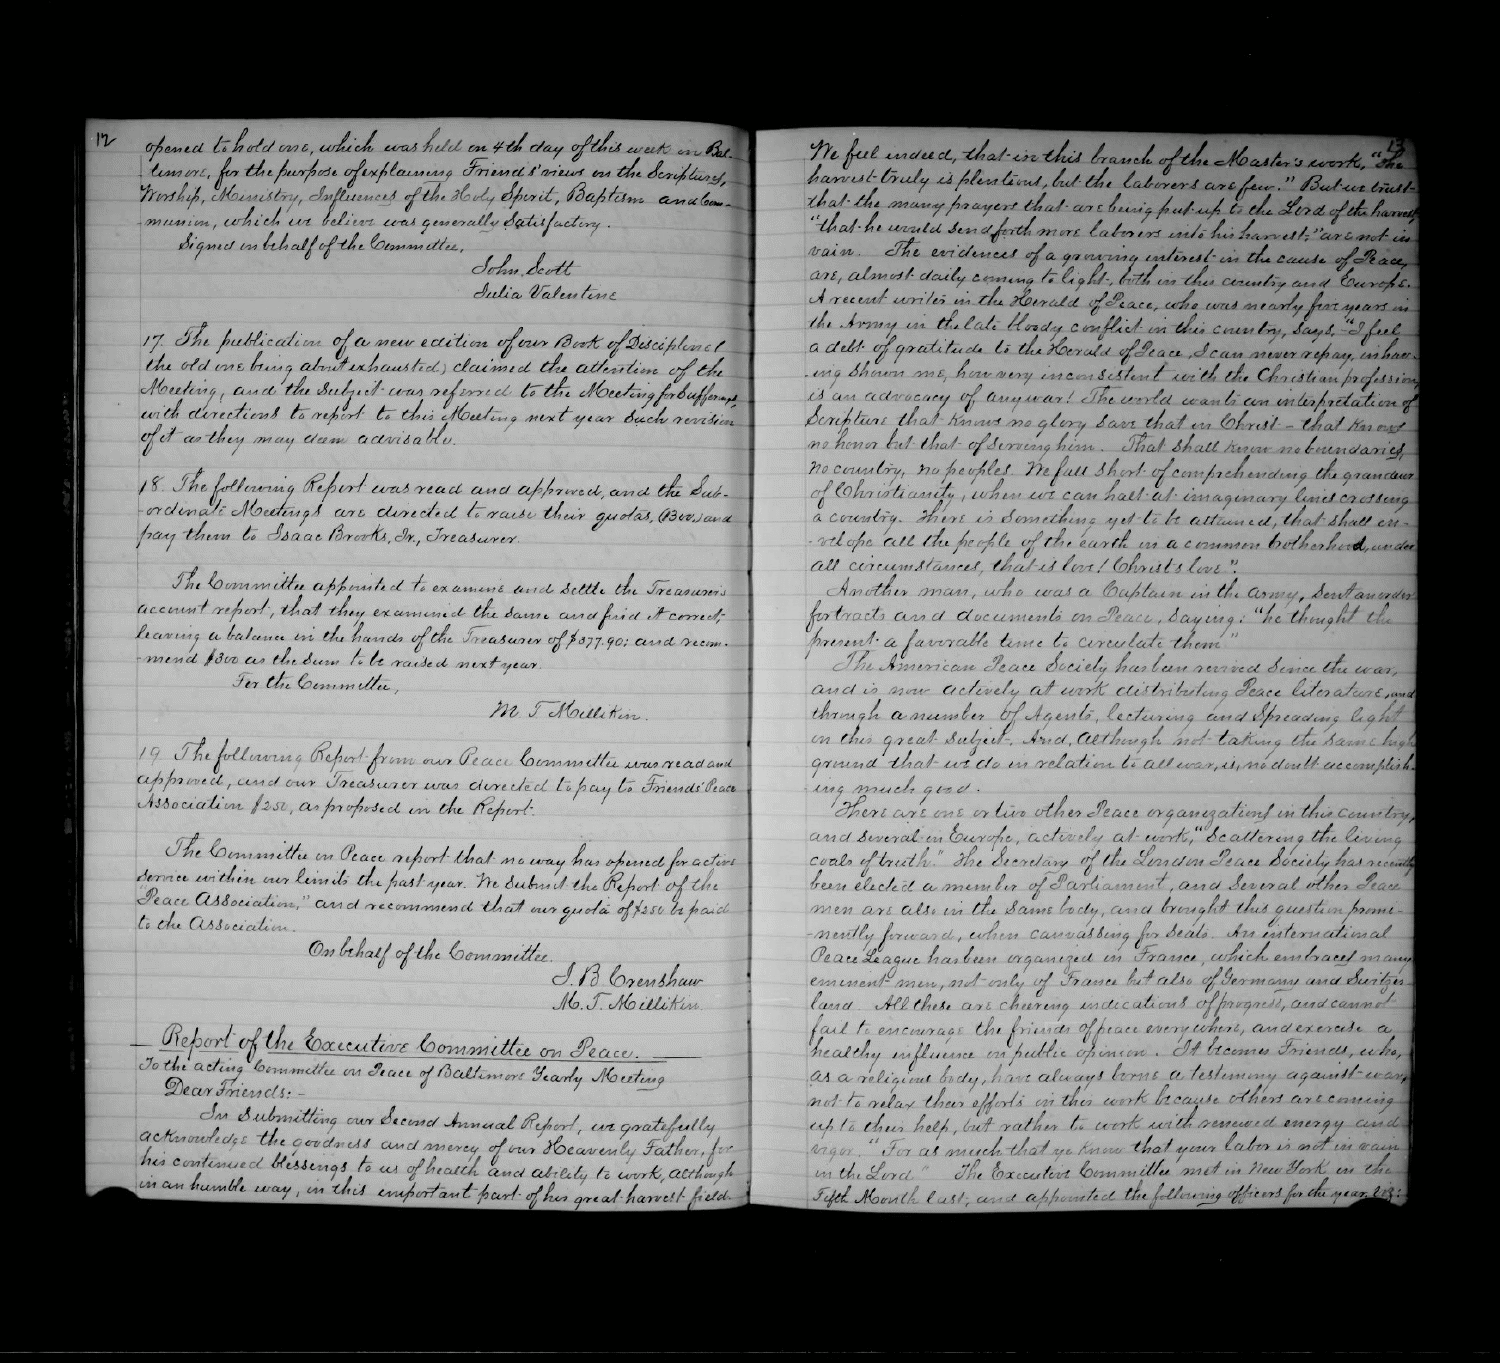 12
opened to hold one, which was held on 4th day of this week in Bal-
timore, for the purpose of explaining Friends' views on the Scriptures,
Worship, Ministry, Influences of the Holy Spirit, Baptism and Com-
munion, which we believe was generally Satisfactory.
Signed on behalf of the Committee,
John Scott
Julia Valentine
17. The publication of a new edition of our Book of Discipline (
the old one being about exhausted) claimed the attention of the
Meeting, and the Subject was referred to the Meeting for Sufferings,
with directions to report to this Meeting next year Such revision
of it as they may deem advisable.
18. The following Report was read and approved, and the Sub-
-ordinate Meetings are directed to raise their quotas, ($300,) and
pay them to Isaac Brooks, Jr., Treasurer.
The Committee appointed to examine and settle the Treasurer's
account report, that they examined the same and find it correct;
leaving a balance in the hands of the Treasurer of $377.90; and recom-
-mend $300 as the sum to be raised next year.
For the Committee,
M. T. Millikin.
19 The following Report from our Peace Committee was read and
approved, and our Treasurer was directed to pay to Friends' Peace
Association $250, as proposed in the Report.
The Committee on Peace report that no way has opened for active
service within our limits the past year. We submit the Report of the
"Peace Association," and recommend that our quota of $250 be paid
to the Association.
On behalf of the Committee.
J. B. Crenshaw
M. T. Millikin
Report of the Executive Committee on Peace.
To the acting Committee on Peace of Baltimore Yearly Meeting
Dear Friends:-
In Submitting our Second Annual Report, we gratefully
acknowledge the goodness and mercy of our Heavenly Father, for
his continued blessings to us of health and ability to work, although
in an humble way, in this important part of his great harvest field.
13
We feel indeed, that in this branch of the Master's work, "The
harvest truly is plenteous, but the laborers are few." But we trust
that the many prayers that are being put up to the Lord of the harvest,
"that he would send forth more laborers into his harvest," are not in
vain. The evidences of a growing interest in the cause of Peace,
are, almost daily coming to light, both in this country and Europe.
A recent writer in the Herald of Peace, who was nearly five years in
the Army in the late bloody conflict in this country, says, "I feel
a debt of gratitude to the Herald of Peace I can never repay, in hav-
-ing shown me, how very inconsistent with the Christian profession,
is an advocacy of any war! The world wants an interpretation of
Scripture that knows no glory save that in Christ - that knows
no honor but that of serving him. That shall know no boundaries,
no country, no peoples. We fall short of comprehending the grandeur
of Christianity, when we can halt at imaginary lines crossing
a country. There is something yet to be attained, that shall en-
-velope all the people of the earth in a common botherhood, under
all circumstances, that is love! Christ's love".
Another man, who was a Captain in the army, sent an order
for tracts and documents on Peace, saying: "he thought the
present a favorable time to circulate them"
The American Peace Society has been revived since the war,
and is now actively at work distributing Peace literature, and
through a number of Agents, lecturing and Spreading light
on this great subject. And, although not taking the same high
ground that we do in relation to all war, is, no doubt accomplish-
-ing much good.
There are one or two other Peace organizations in this country,
and several in Europe, actively at work, "scattering the living
coals of truth." The Secretary of the London Peace Society has recently
been elected a member of Parliament, and several other Peace
men are also in the same body, and brought this question promi-
-nently forward, when canvassing for seats. An international
Peace League has been organized in France, which embraces many
eminent men, not only of France but also of Germany and Switzer-
land. All these are cheering indications of progress, and cannot
fail to encourage the friends of peace everywhere, and exercise a
healthy influence on public opinion. It becomes Friends, who,
as a religious body, have always borne a testimony against war,
not to relax their efforts in this work because others are coming
up to their help, but rather to work with renewed energy and
vigor. "For as much that ye know that your labor is not in vain
in the Lord" The Executive Committee met in New York in the
Fifth Month last, and appointed the following officers for the year, viz: